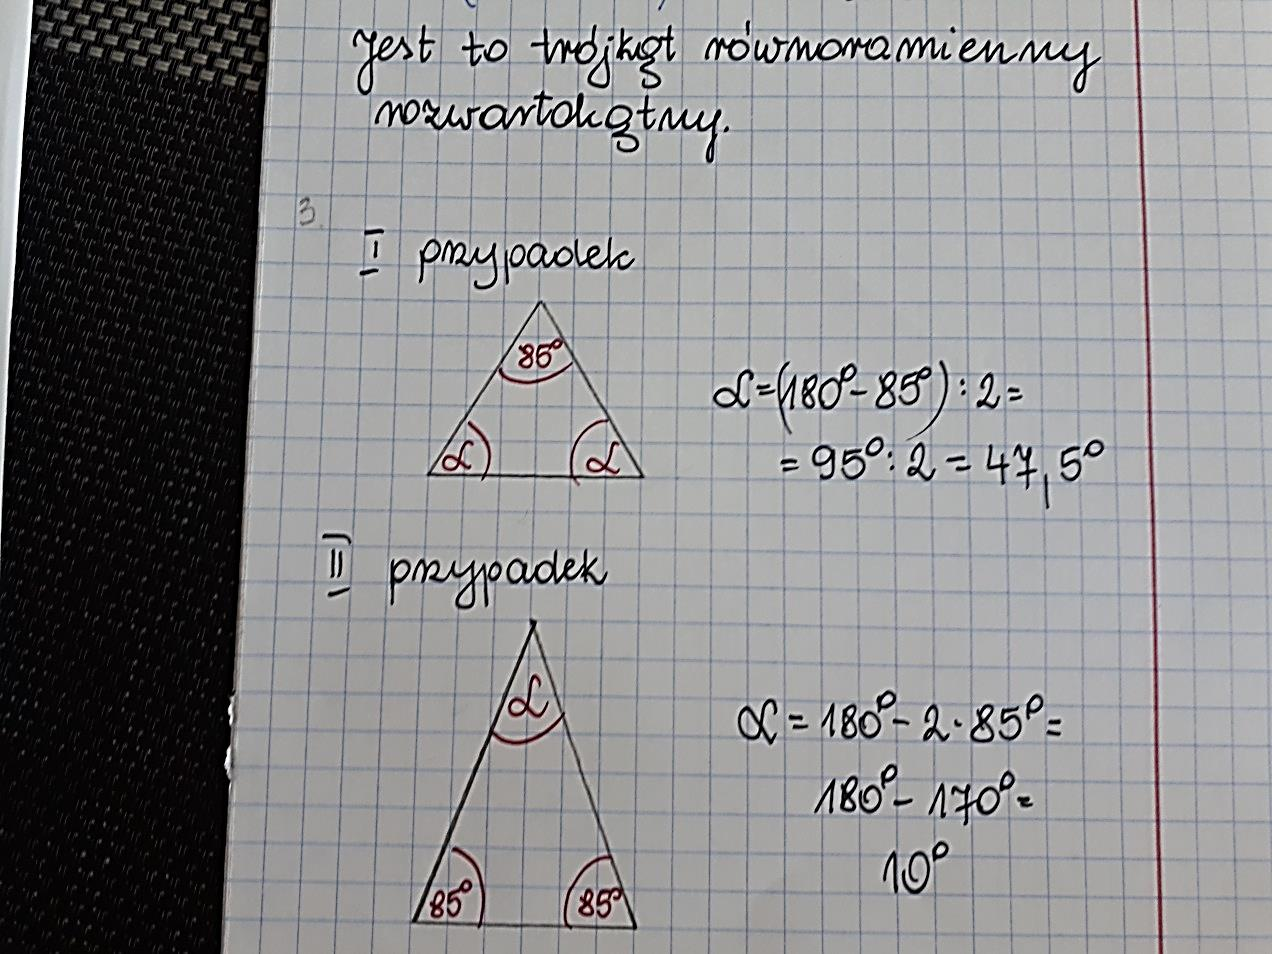 Jest to trójkąt równoramienny
rozwartokątny.
3.
I przypadek
85°
α α
α=(180°-85°):2=
=95°:2=47,5°
II przypadek
α
85° 85°
α=180°-2·85°=
180°-170°=
10°